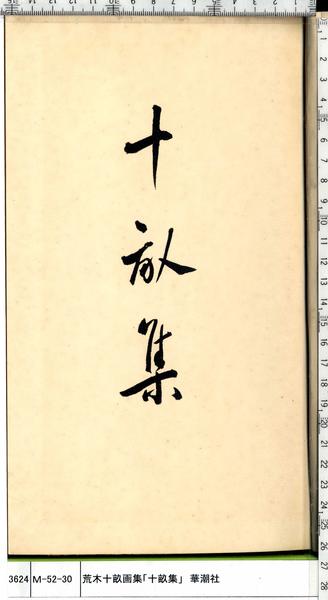 十畝集
3624 M-52-30 荒木十畝画集「十畝集」 華潮社